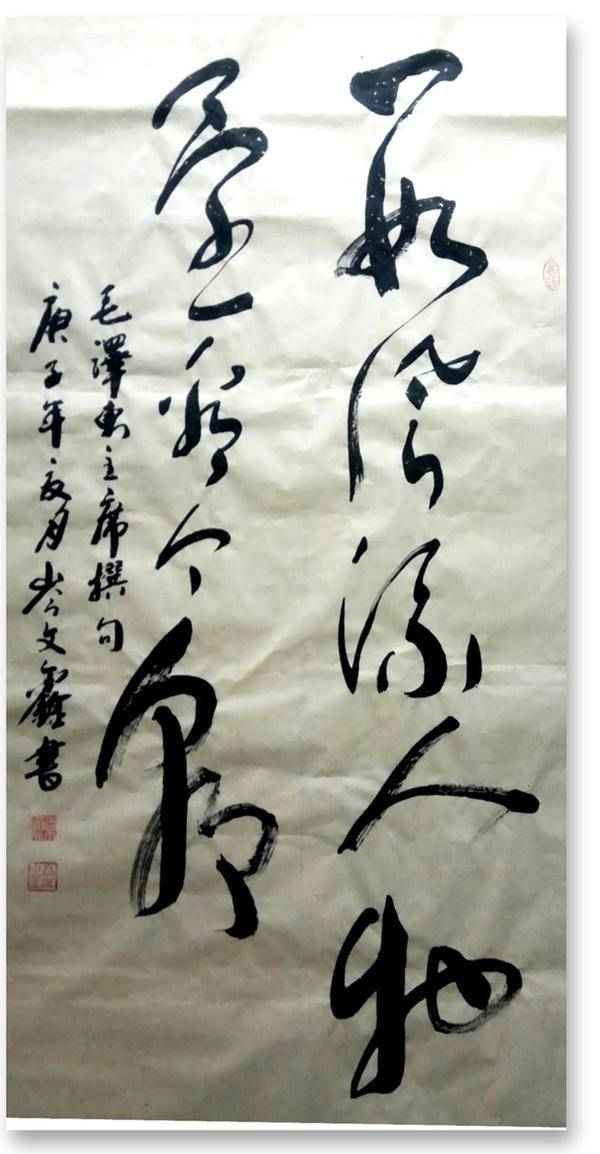 數風流人物
還看今朝
毛澤東主席撰句
庚子年夏月岑文書